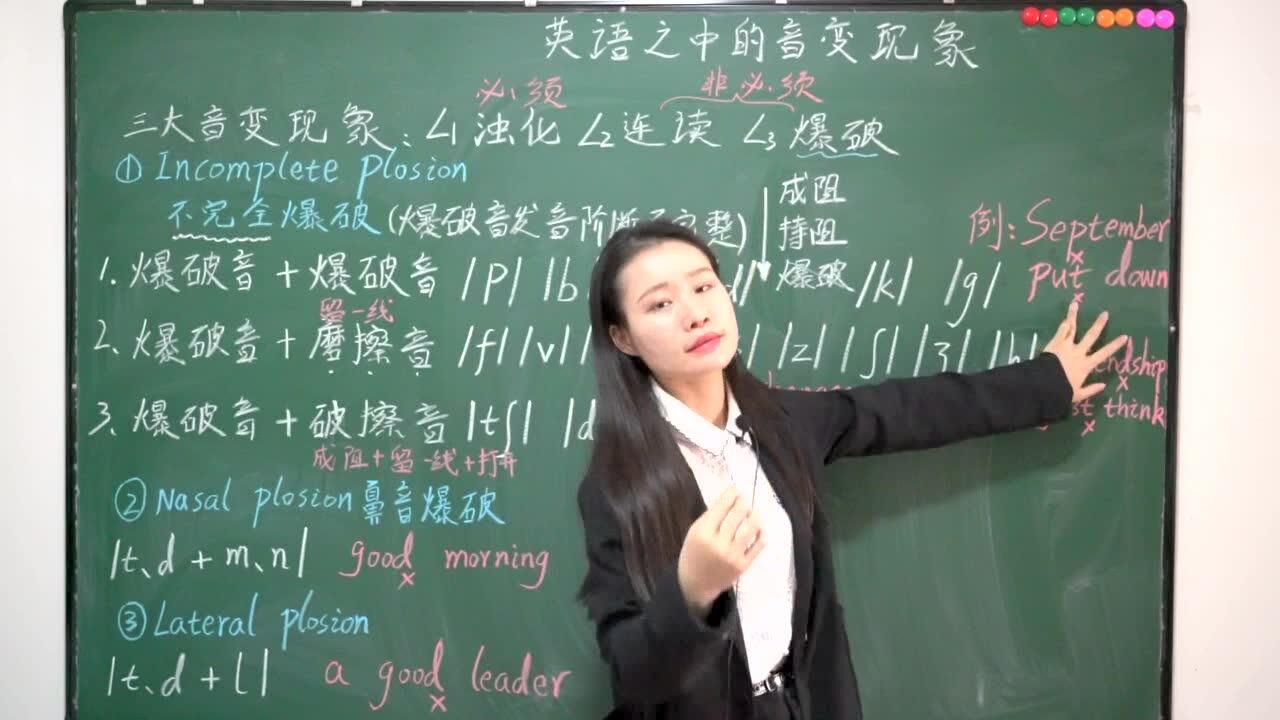 英语之中的音变现象
必须 非必须
三大音变现象：∠1浊化 ∠2连读 ∠3爆破
① Incomplete plosion
不完全爆破(爆破音发音阶断不完整)
成阻
持阻
爆破
例: September
1. 爆破音 + 爆破音 /p/ /b /k/ /g/ put down
留一线
2. 爆破音 + 摩擦音 /f/ /v/ /z/ /ʃ/ /ʒ/ /h/
3. 爆破音 + 破擦音 /tʃ/ /d think
成阻+留一线+打开
② Nasal plosion 鼻音爆破
/t、d + m、n/ good morning
③ Lateral plosion
/t、d + l/ a good leader